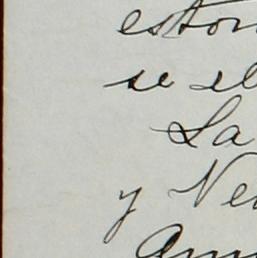 eston
se el
La
y Ne
Am